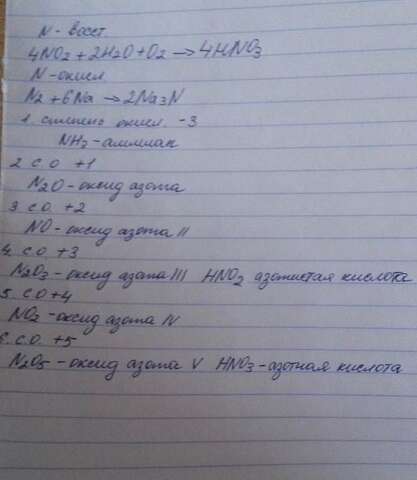 N - восст.
4NO2 + 2H2O + O2 → 4HNO3
N - окисл.
N2 + 6Na → 2Na3N
1. степень окисл. -3
NH3 - аммиак
2. С.О. +1
N2O - оксид азота
3. С.О. +2
NO - оксид азота II
4. С.О. +3
N2O3 - оксид азота III HNO2 азотистая кислота
5. СО +4
NO2 - оксид азота IV
6. С.О. +5
N2O5 - оксид азота V HNO3 - азотная кислота